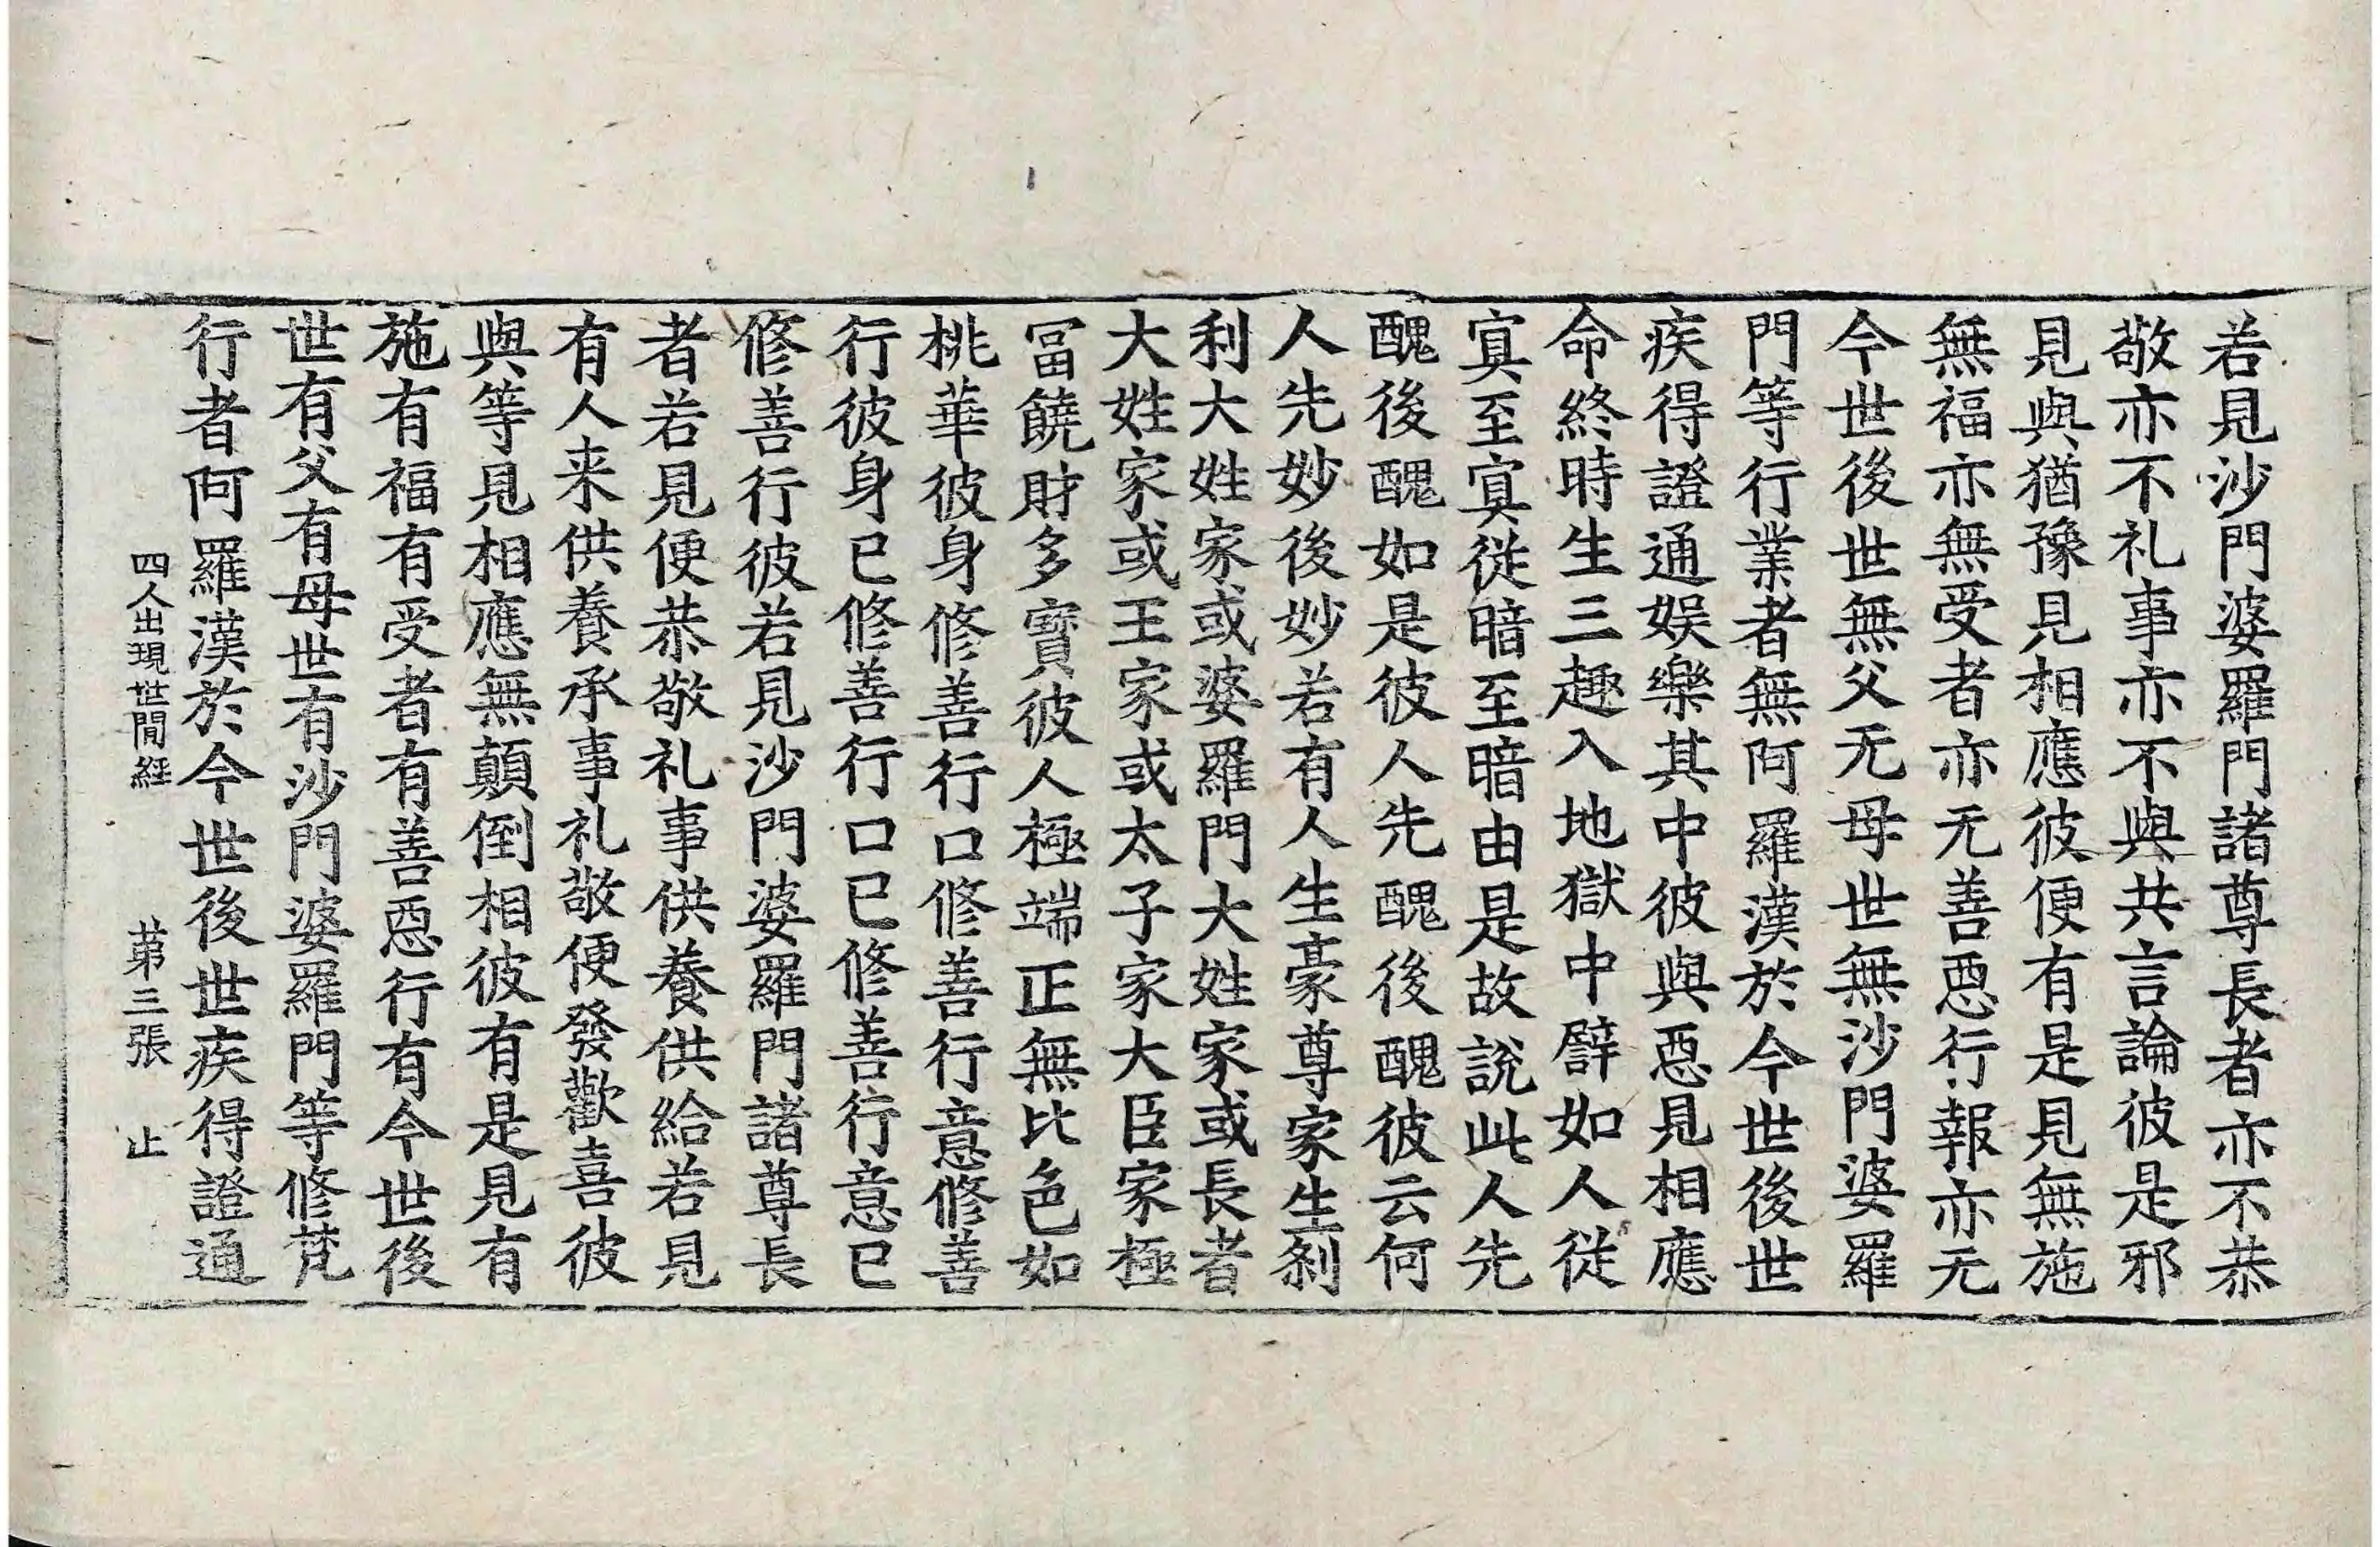 若見沙門婆羅門諸尊長者亦不恭
敬亦不礼事亦不與共言論彼是邪
見與猶豫見相應彼便有是見無施
無福亦無受者亦无善惡行報亦无
今世後世無父无母世無沙門婆羅
門等行業者無阿羅漢於今世後世
疾得證通娛樂其中彼與惡見相應
命終時生三趣入地獄中譬如人從
寘至寘從暗至暗由是故說此人先
醜後醜如是彼人先醜後醜彼云何
人先妙後妙若有人生豪尊家生刹
利大姓家或婆羅門大姓家或長者
大姓家或王家或太子家大臣家極
冨饒財多寶彼人極端正無比色如
桃華彼身修善行口修善行意修善
行彼身已修善行口已修善行意已
修善行彼若見沙門婆羅門諸尊長
者若見便恭敬礼事供養供給若見
有人来供養承事礼敬便發歡喜彼
與等見相應無顛倒相彼有是見有
施有福有受者有善惡行有今世後
世有父有母世有沙門婆羅門等修梵
行者阿羅漢於今世後世疾得證通
四人出現世間經 苐三張 止